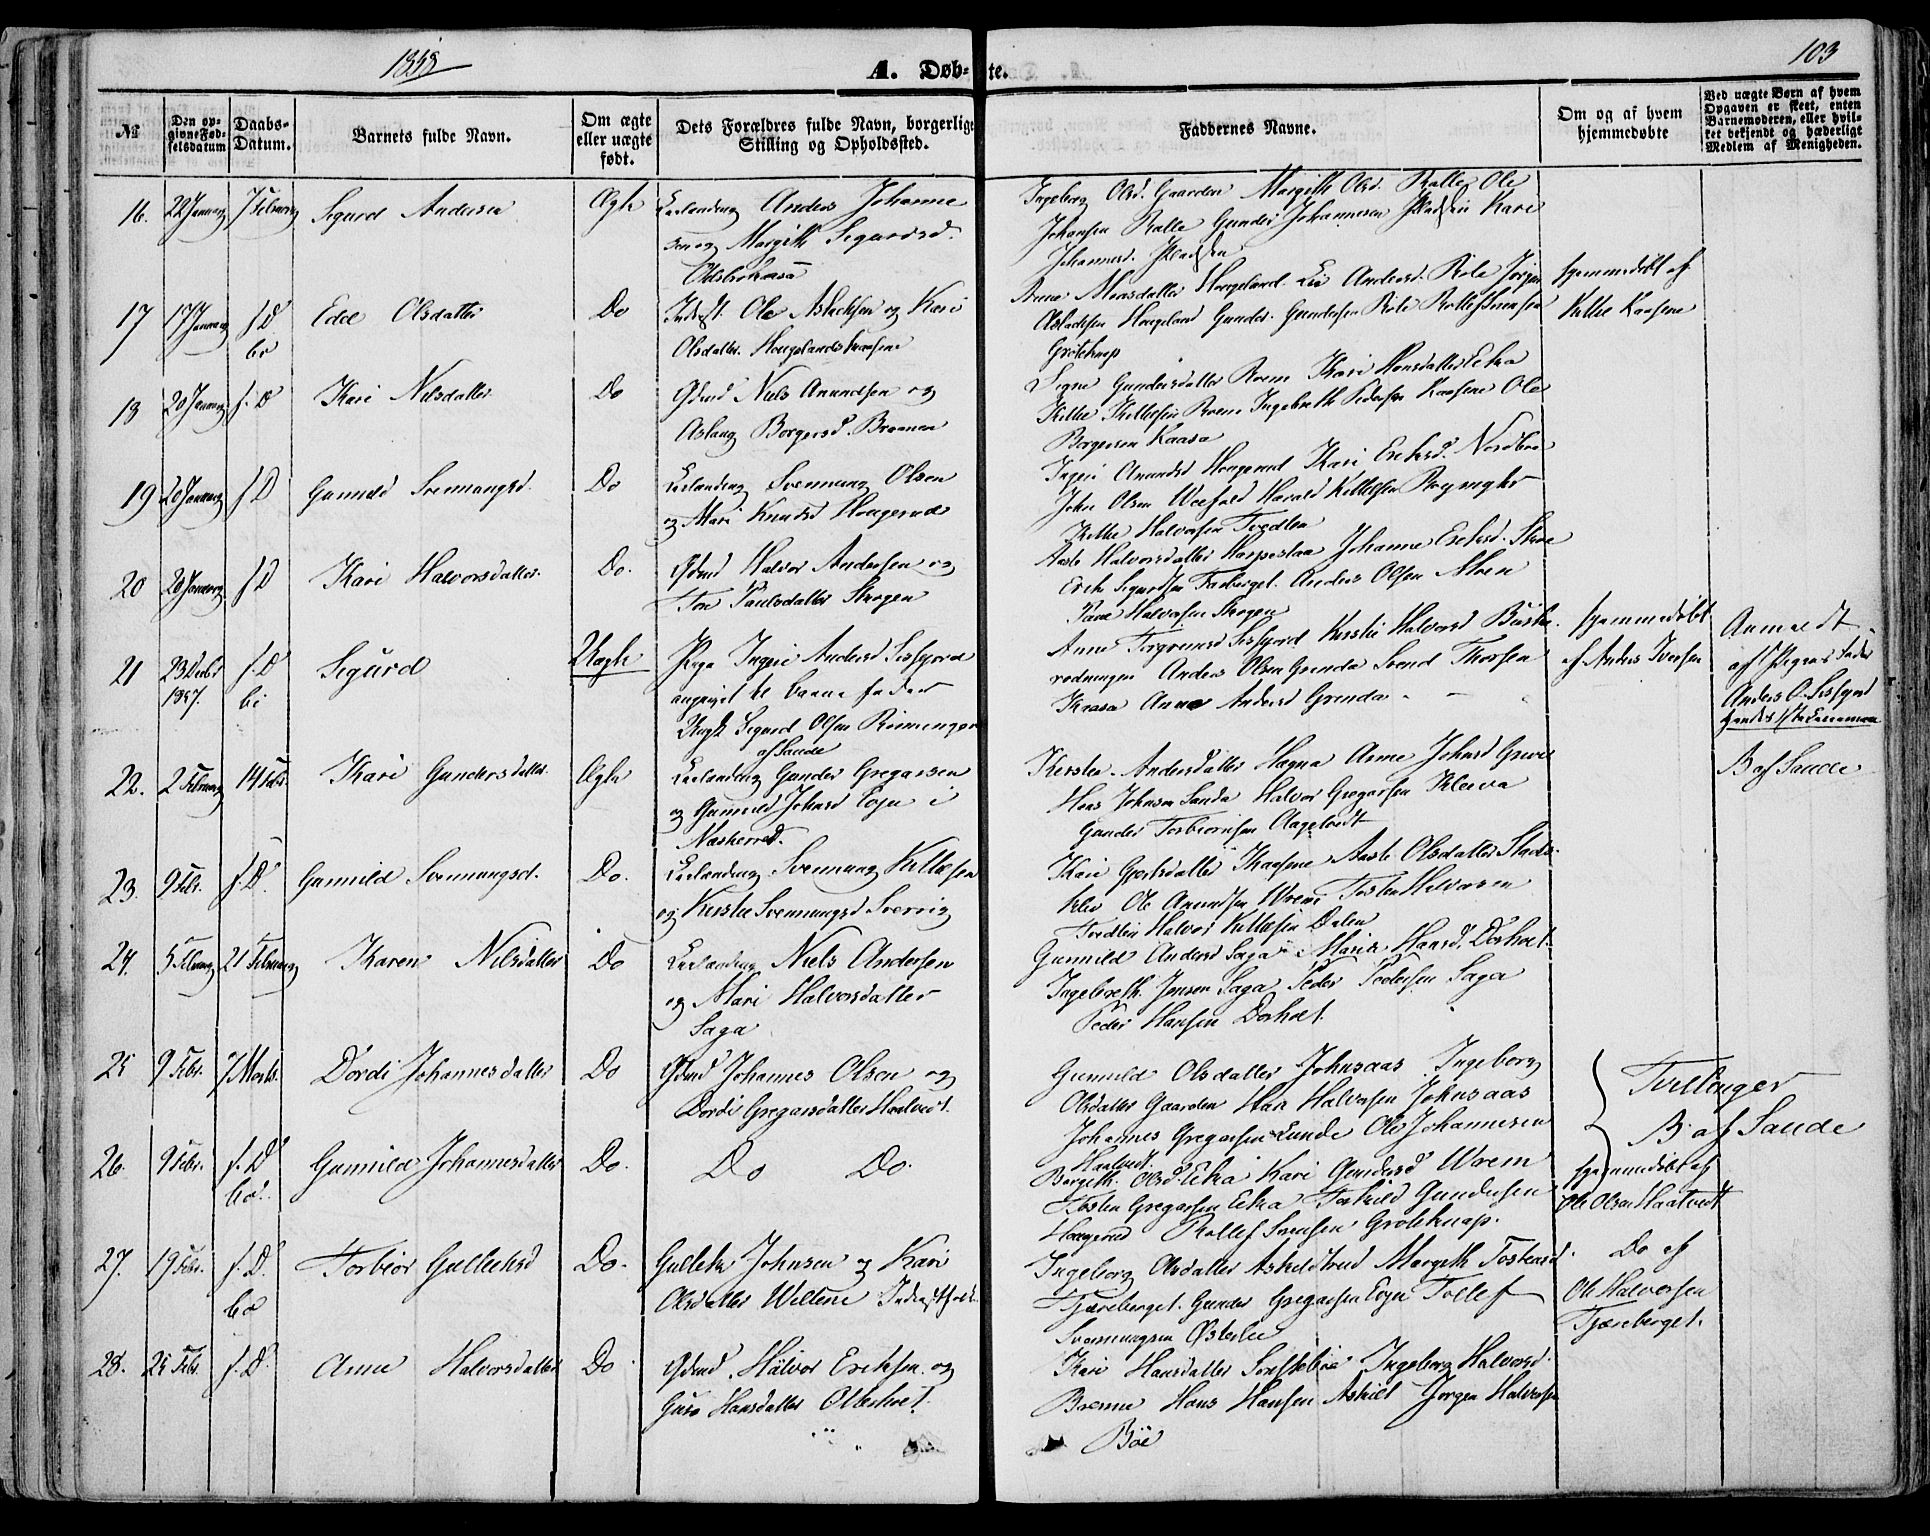 1858
A. Døb-te.
103
№
Den op-givne Fød-selsdatum
Daabs-Datum.
Barnets fulde Navn.
Om ægte eller uægte født.
Dets Forældres fulde Navn, borgerlige Stilling og Opholdssted.
Faddernes Navne.
Om og af hvem hjemmedøbte
Ved uægte Børn af hvem Opgaven er skeet, enten Barnemoderen, eller hvil-ket bekjendt og hæderligt Medlem af Menigheden.
16. 22 Januar 7 Februar Sigurd Andersen Ægte Anders Johanne
sen og Margith Sigurdsd.
Ingeborg Olsd. Gaarden Margith Olsd. Ralle Ole
Johansen Ralle Gunder Johannesen Kari
Johannesd.
17 17 Januar s D Edel Olsdatter Do Inderst Ole Aslaksen og Kari
Olsdatter Hougelandskaasene
Anne Monsdatter Hougeland Liv Andersd. Role Jørgen
Aslaksen Hougeland Gunder Gundersen Role Rollef Svensen
Groteknap
hjemmedøbt af
Kittil Kaasene
18 20 Januar s. D Kari Nilsdatter Do Gdmd Niels Anundsen og
Aslaug Borgersd. Braanen
Signe Gundersdatter Roem Kari Hansdatter Eika
Kittil Kittilsen Roem Ingebreth Pedersen Kaasene Ole
Borgersen Kaasa
19 20 Januar s D Gunnild Svennungsd. Do Svennung Olsen
og Mari Knudsd Hougerud
Ingeri Anundsd Hougerud Kari Eriksd. Nordboe
John Olsen Harald Kittilsen
Kittil Halvorsen Tvedten
20 20 Januar s D Kari Halvorsdatter Do. Gdmd Halvor Andersen og
Ton Paulsdatter Skogen
Aaste Halvorsdatter Johanne Eriksd. Skoe
Erik Sigurdsen Farberget. Anders Olsen Moen
Paul Halvorsen Skogen
21 23 Decbr 1857. s. D Sigurd Uægte Pige Ingeri Andersd Sisjord
angivet til barnefader
Ungk. Sigurd Olsen Rimingen
af Sande
Anne Torgrimsd Sisjord Kirstie Halvorsd Buske
rødningen Anders Olsen Grenda Svend Thorsen
Kaasa Anne Andersd Grenda
hjemmedøbt
af Anders Iversen
Anmeldt
af Pigens Fader
Anders O. Sisjord
22. 2 Februar 14 Febr Kari Gundersdatter Ægte Gunder Gregarsen
og Gunnild Johnsd Eojn i
Næsherred.
Kirstie Andersdatter Hægna Anne Johnsd Grave
Hans Johnsen Sanda Halvor Gregarsen Kleiva
Gunder Torbiornsen Aagetvedt
B af Sande
23. 9 Febr. s. D. Gunnild Svennungsd. Do. Svennung Kittilsen
og Kirstie Svennungsd
Kari Gjertsdatter Kaasene Aaste Olsdatter Stads-
kleiv Ole Anundsen Wrem Tosten Halvorsen
Tvedten Halvor Kittilsen Dalen
24. 5 Februar 21 Februar Karen Nilsdatter Do Niels Andersen
og Mari Halvorsdatter
Saga
Gunnild Andersd Saga Maria Hansd. Dorholt
Ingebreth Jensen Saga Peder Pedersen Saga
Peder Hansen Dorholt
25 9 Febr. 7 Marts. Dordi Johannesdatter Do Gdmd Johannes Olsen og
Dordi Gregarsdatter Haatvedt.
Gunnild Olsdatter Johnsaas Ingeborg
Olsdatter Gaarden Hans Halvorsen Johnsaas
Johannes Gregarsen Lunde Ole Johannesen
Haatvedt.
Tvillinger
B. af Sande
26. 9 Febr. s. D Gunnild Johannesdatter Do. Do Do.
Bergith Olsd. Eika Kari Gundersd Wrem
Tosten Gregarsen Eika Torkild Gundersen
Hougerud Rollef Svensen Groteknap.
hjemmedøbt af
Ole Olsen Haatvedt
27. 19 Febr. s. D. Torbior Gulleiksd Do. Gulleik Johnsen og Kari
Olsdatter Wiltene Inderstfolk
Ingeborg Olsdatter Askildtrud Margith Tostensd.
Tjæreberget. Gunder Gregarsen Eojn Tollef
Svennungsen Østerlie
Do af
Ole Halvorsen
Tjæreberget.
28. 25 Febr s. D. Anne Halvorsdatter Do Gdmd Halvor Eriksen og
Guro Hansdatter Otterholt
Kari Hansdatter Ingeborg Halvorsd.
Brenne Hans Hansen Askilt Jørgen Halvorsen
Bøe